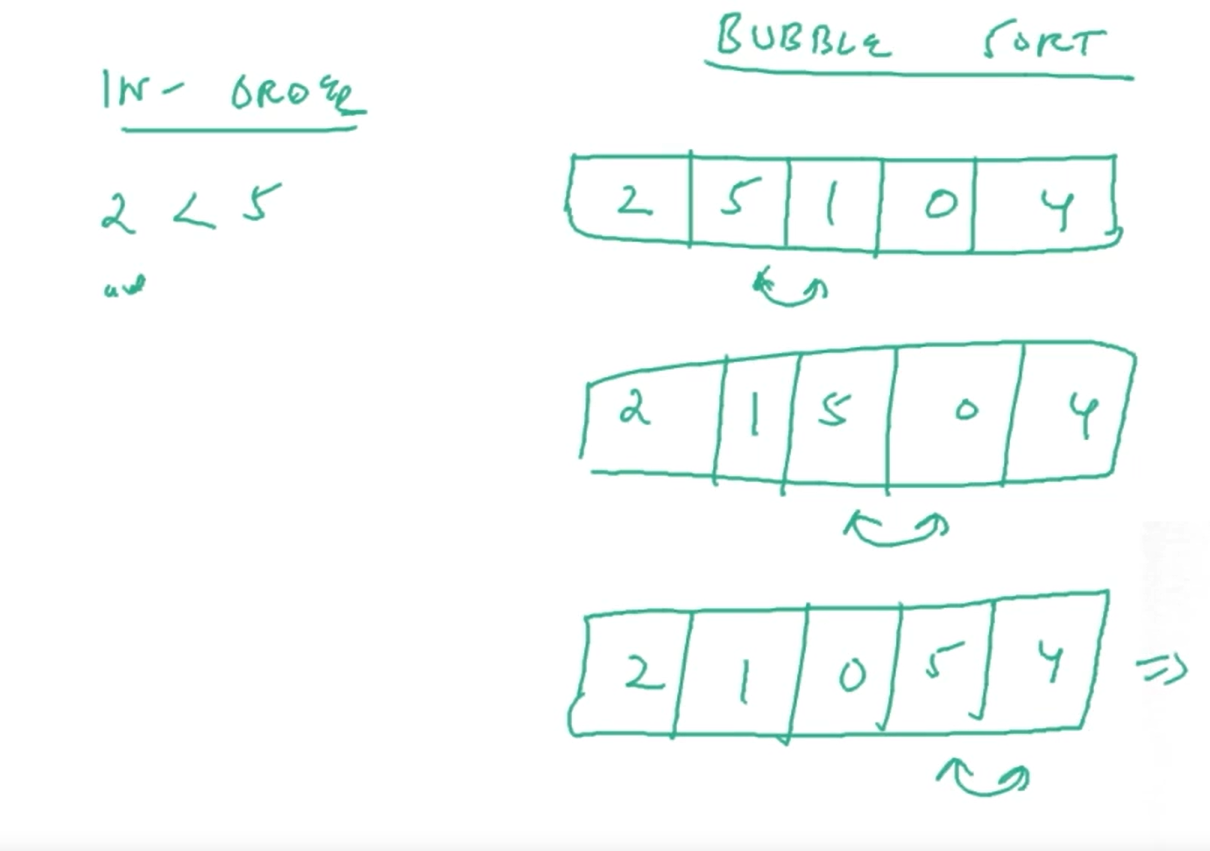 BUBBLE SORT
IN- ORDER
2 < 5
2 5 1 0 4
2 1 5 0 4
2 1 0 5 4 ⇒